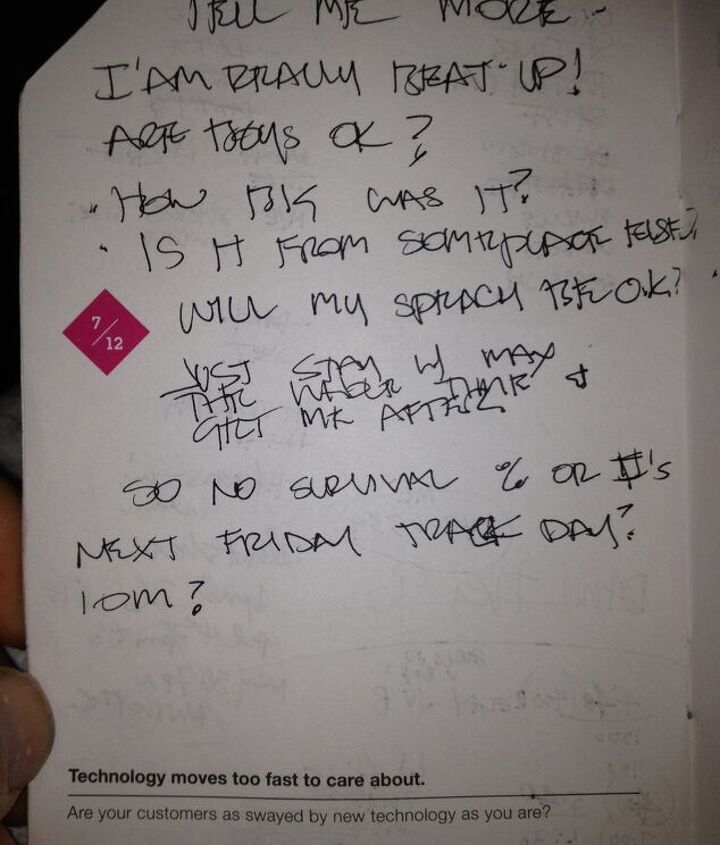 TELL ME MORE -
I'AM REALLY BEAT-UP!
ARE BOYS OK?
" HOW BIG WAS IT?
• IS IT FROM SOMEPLACE ELSE?
WILL MY SPEACH BE O.K?
7/12
JUST STAY W/ MAX
THE WHOLE TIME +
GET ME AFTER
SO NO SURVIVAL % OR #'s
NEXT FRIDAY TRACK DAY?
10M?
Technology moves too fast to care about.
Are your customers as swayed by new technology as you are?